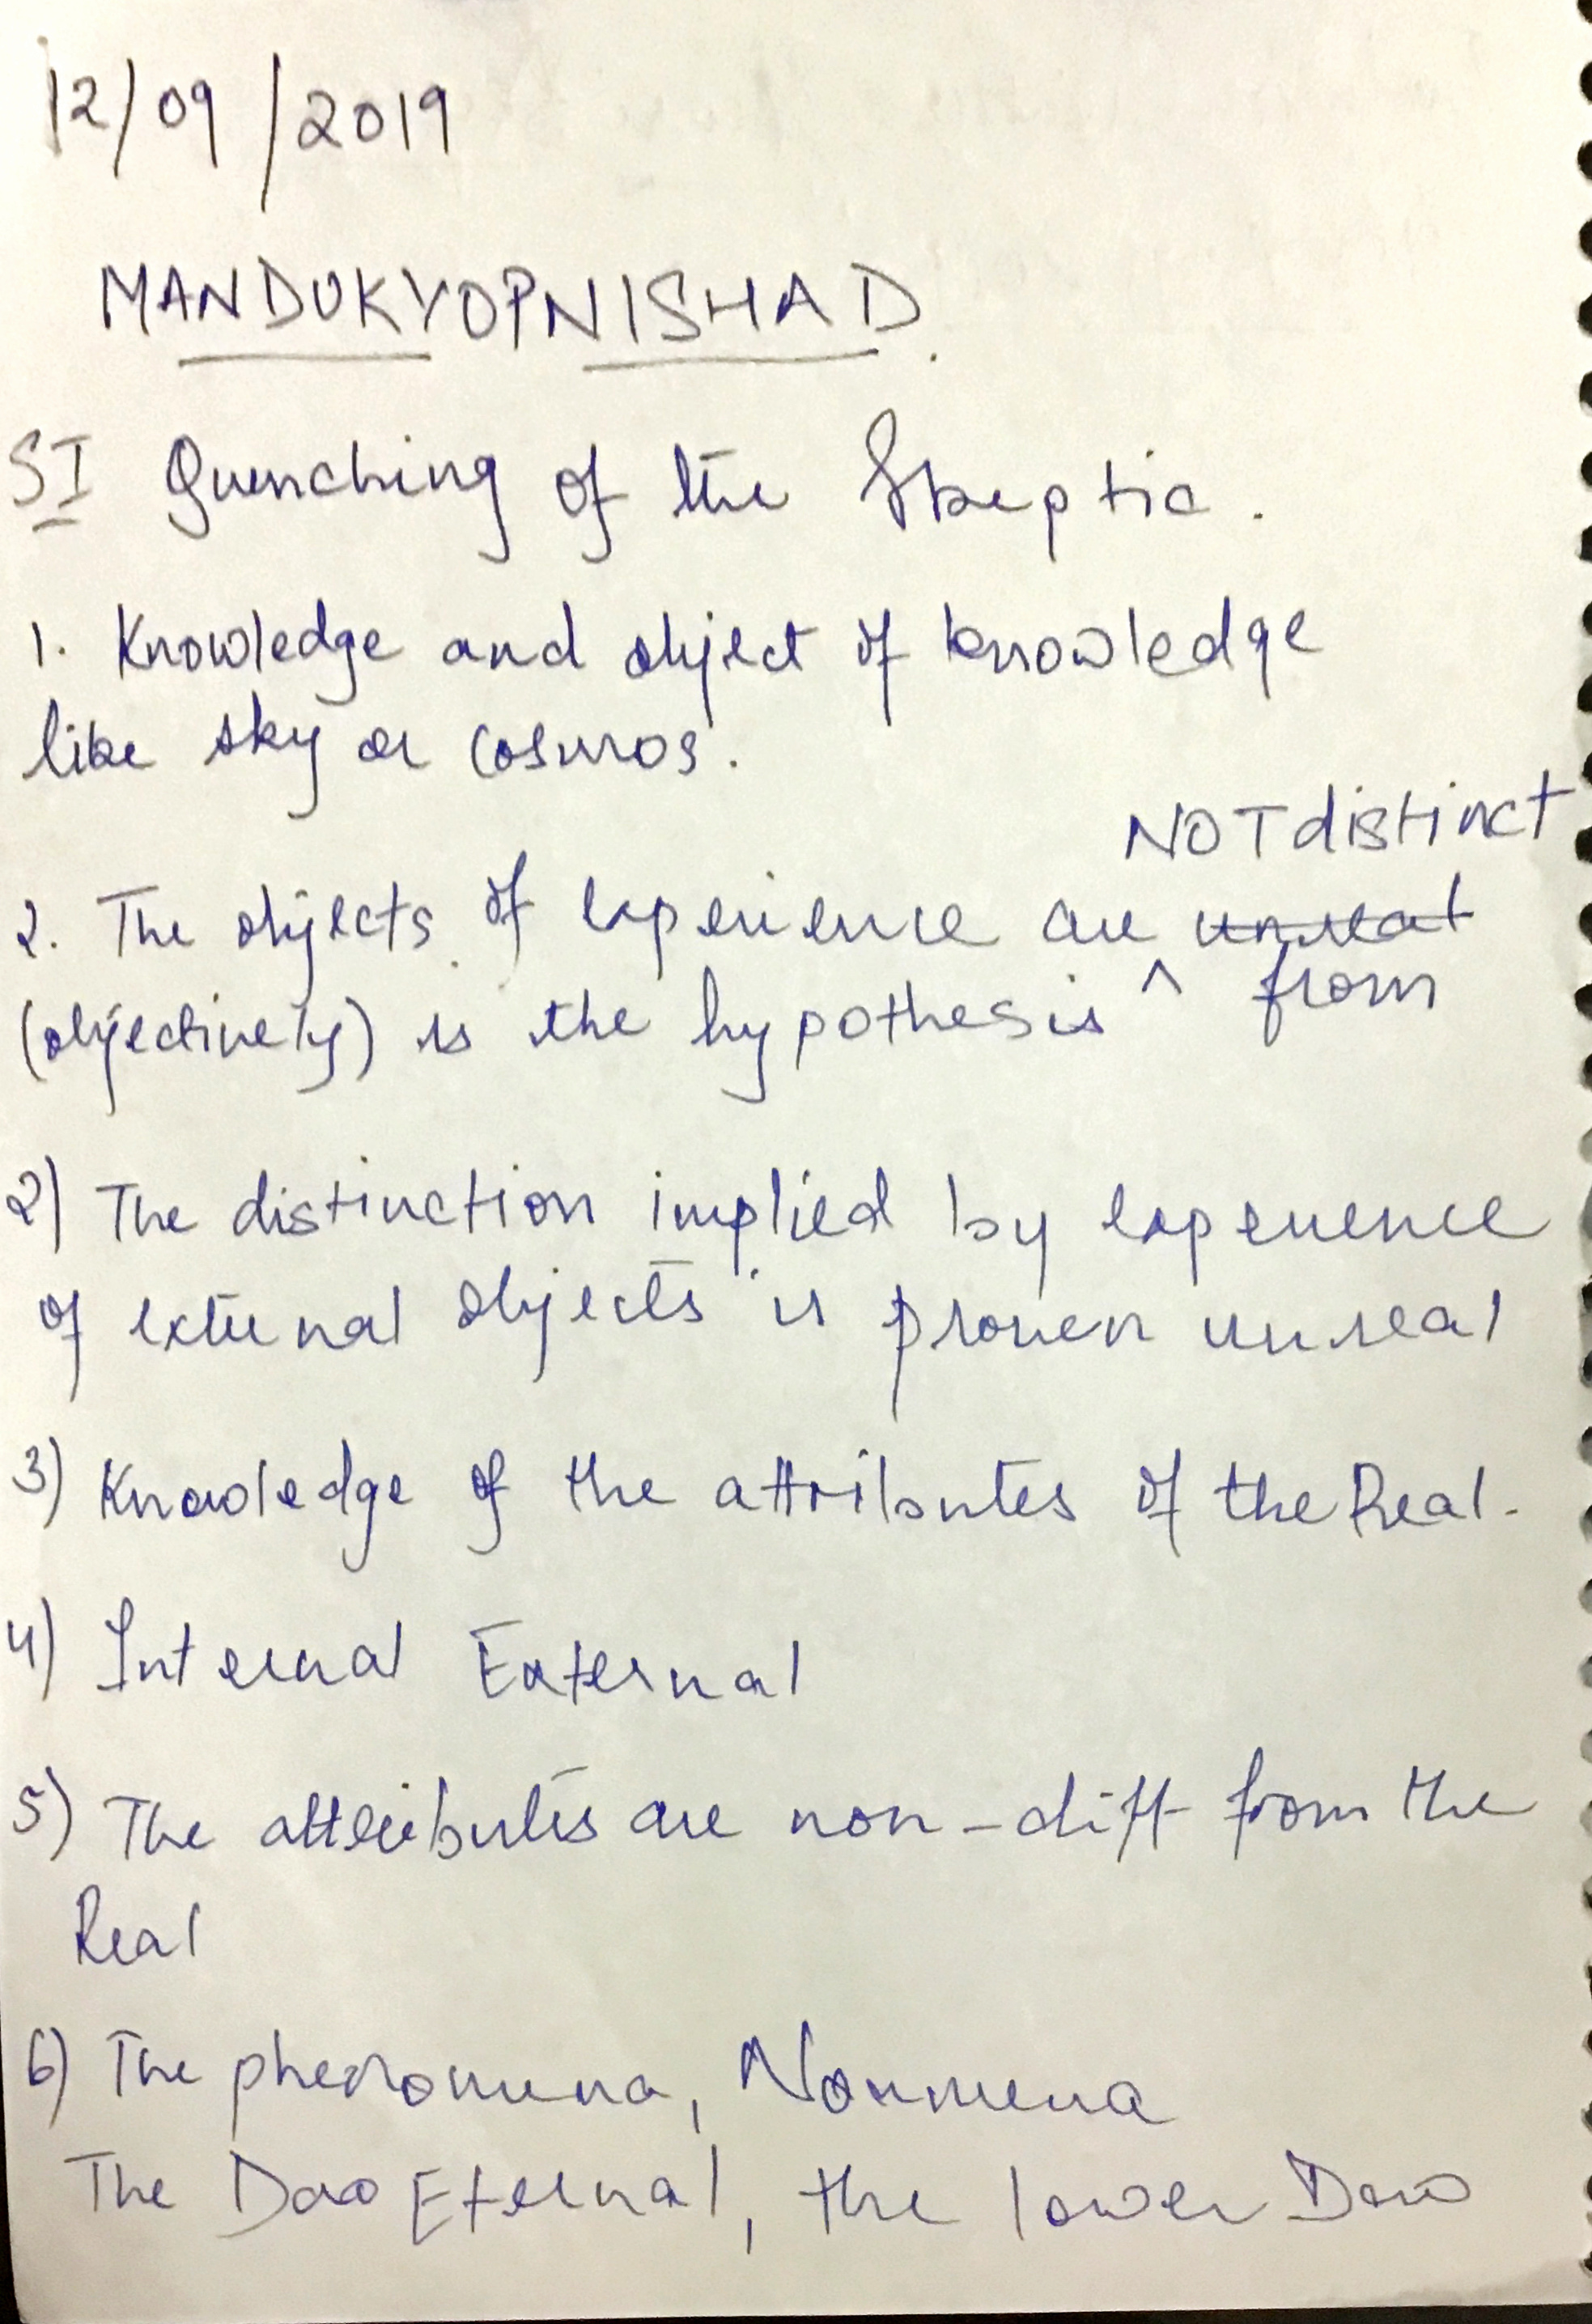 12/09/2019
MANDUKYOPNISHAD.
SI Quenching of the Skeptic.
1. Knowledge and object of knowledge
like sky or cosmos.
NOT distinct
2. The objects of experience are unreal
(objectively) is the hypothesis ^ from
2) The distinction implied by experience
of external objects is proven unreal
3) Knowledge of the attributes of the Real.
4) Internal External
5) The attributes are non-diff from the
Real
6) The phenomena, Noumena
The Dao Eternal, the lower Dao